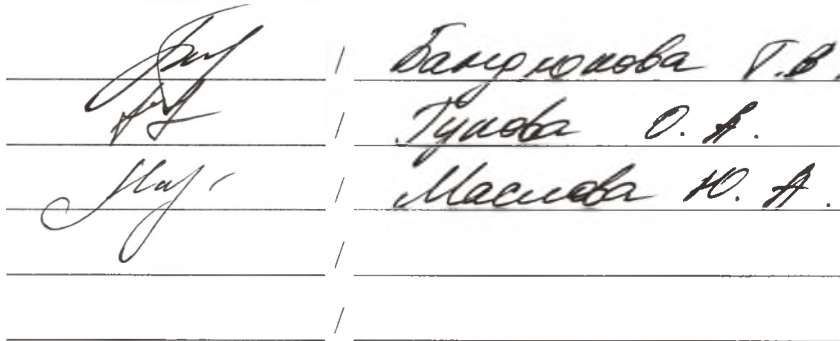 / Бандюкова Т.В.
/ Гукова О. А.
/ Маслова Ю. А.
/
/